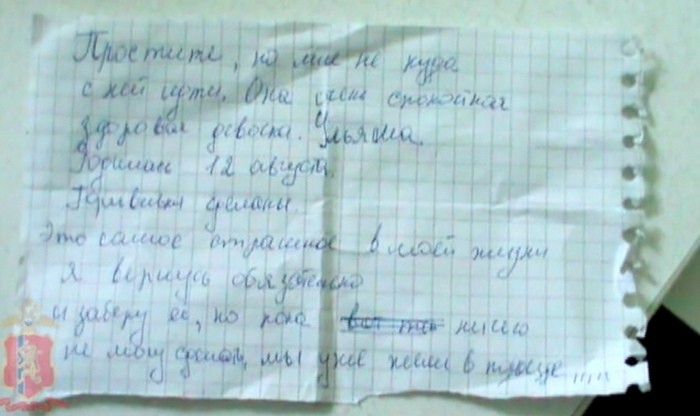 Простите, но мне не куда
с ней идти. Она очень спокойная
здоровая девочка. Ульяша.
Родилась 12 августа.
Прививки сделаны.
Это самое страшное в моей жизни
Я вернусь обязательно
и заберу её, но пока ничего
не могу сделать, мы уже жили в